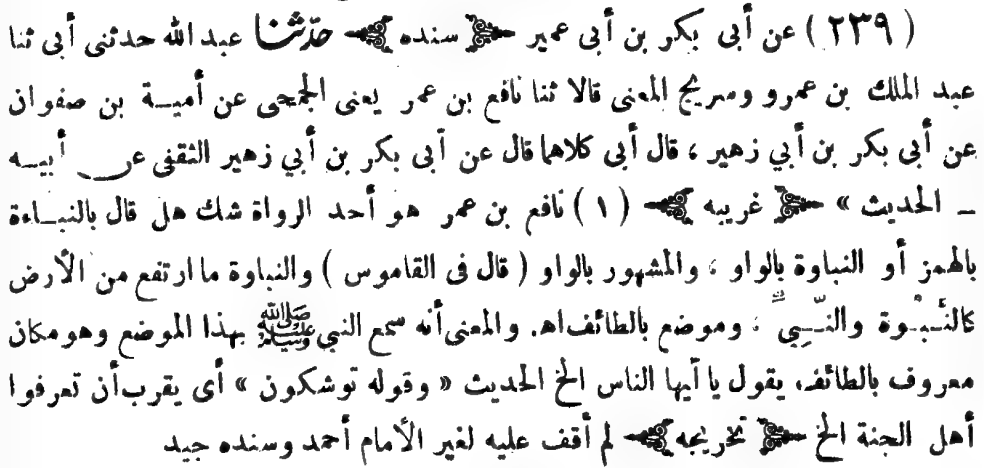 (٢٣٩) عن أبى بكر بن أبى عمير ﴿سنده﴾ حدّثنا عبد الله حدثنى أبى ثنا
عبد الملك بن عمرو وسريج المعنى قالا ثنا نافع بن عمر يعنى الجمحى عن أميـة بن صفوان
عن أبى بكر بن أبي زهير ، قال أبى كلاهما قال عن أبى بكر بن أبي زهير الثقفى عن أبيـه
ـ الحديث » ﴿غريبه﴾ (١) نافع بن عمر هو أحد الرواة شك هل قال بالنبـاءة
بالهمز أو النباوة بالواو ، والمشهور بالواو ( قال فى القاموس ) والنباوة ما ارتفع من الأرض
كالنَّبْوة والنَّـبِي ، وموضع بالطائف اهـ. والمعنى أنه سمع النبي ﷺ بهذا الموضع وهو مكان
معروف بالطائف، يقول يا أيها الناس الخ الحديث « وقوله توشكون » أى يقرب أن تعرفوا
أهل الجنة الخ ﴿تخريجه﴾ لم أقف عليه لغير الأمام أحمد وسنده جيد